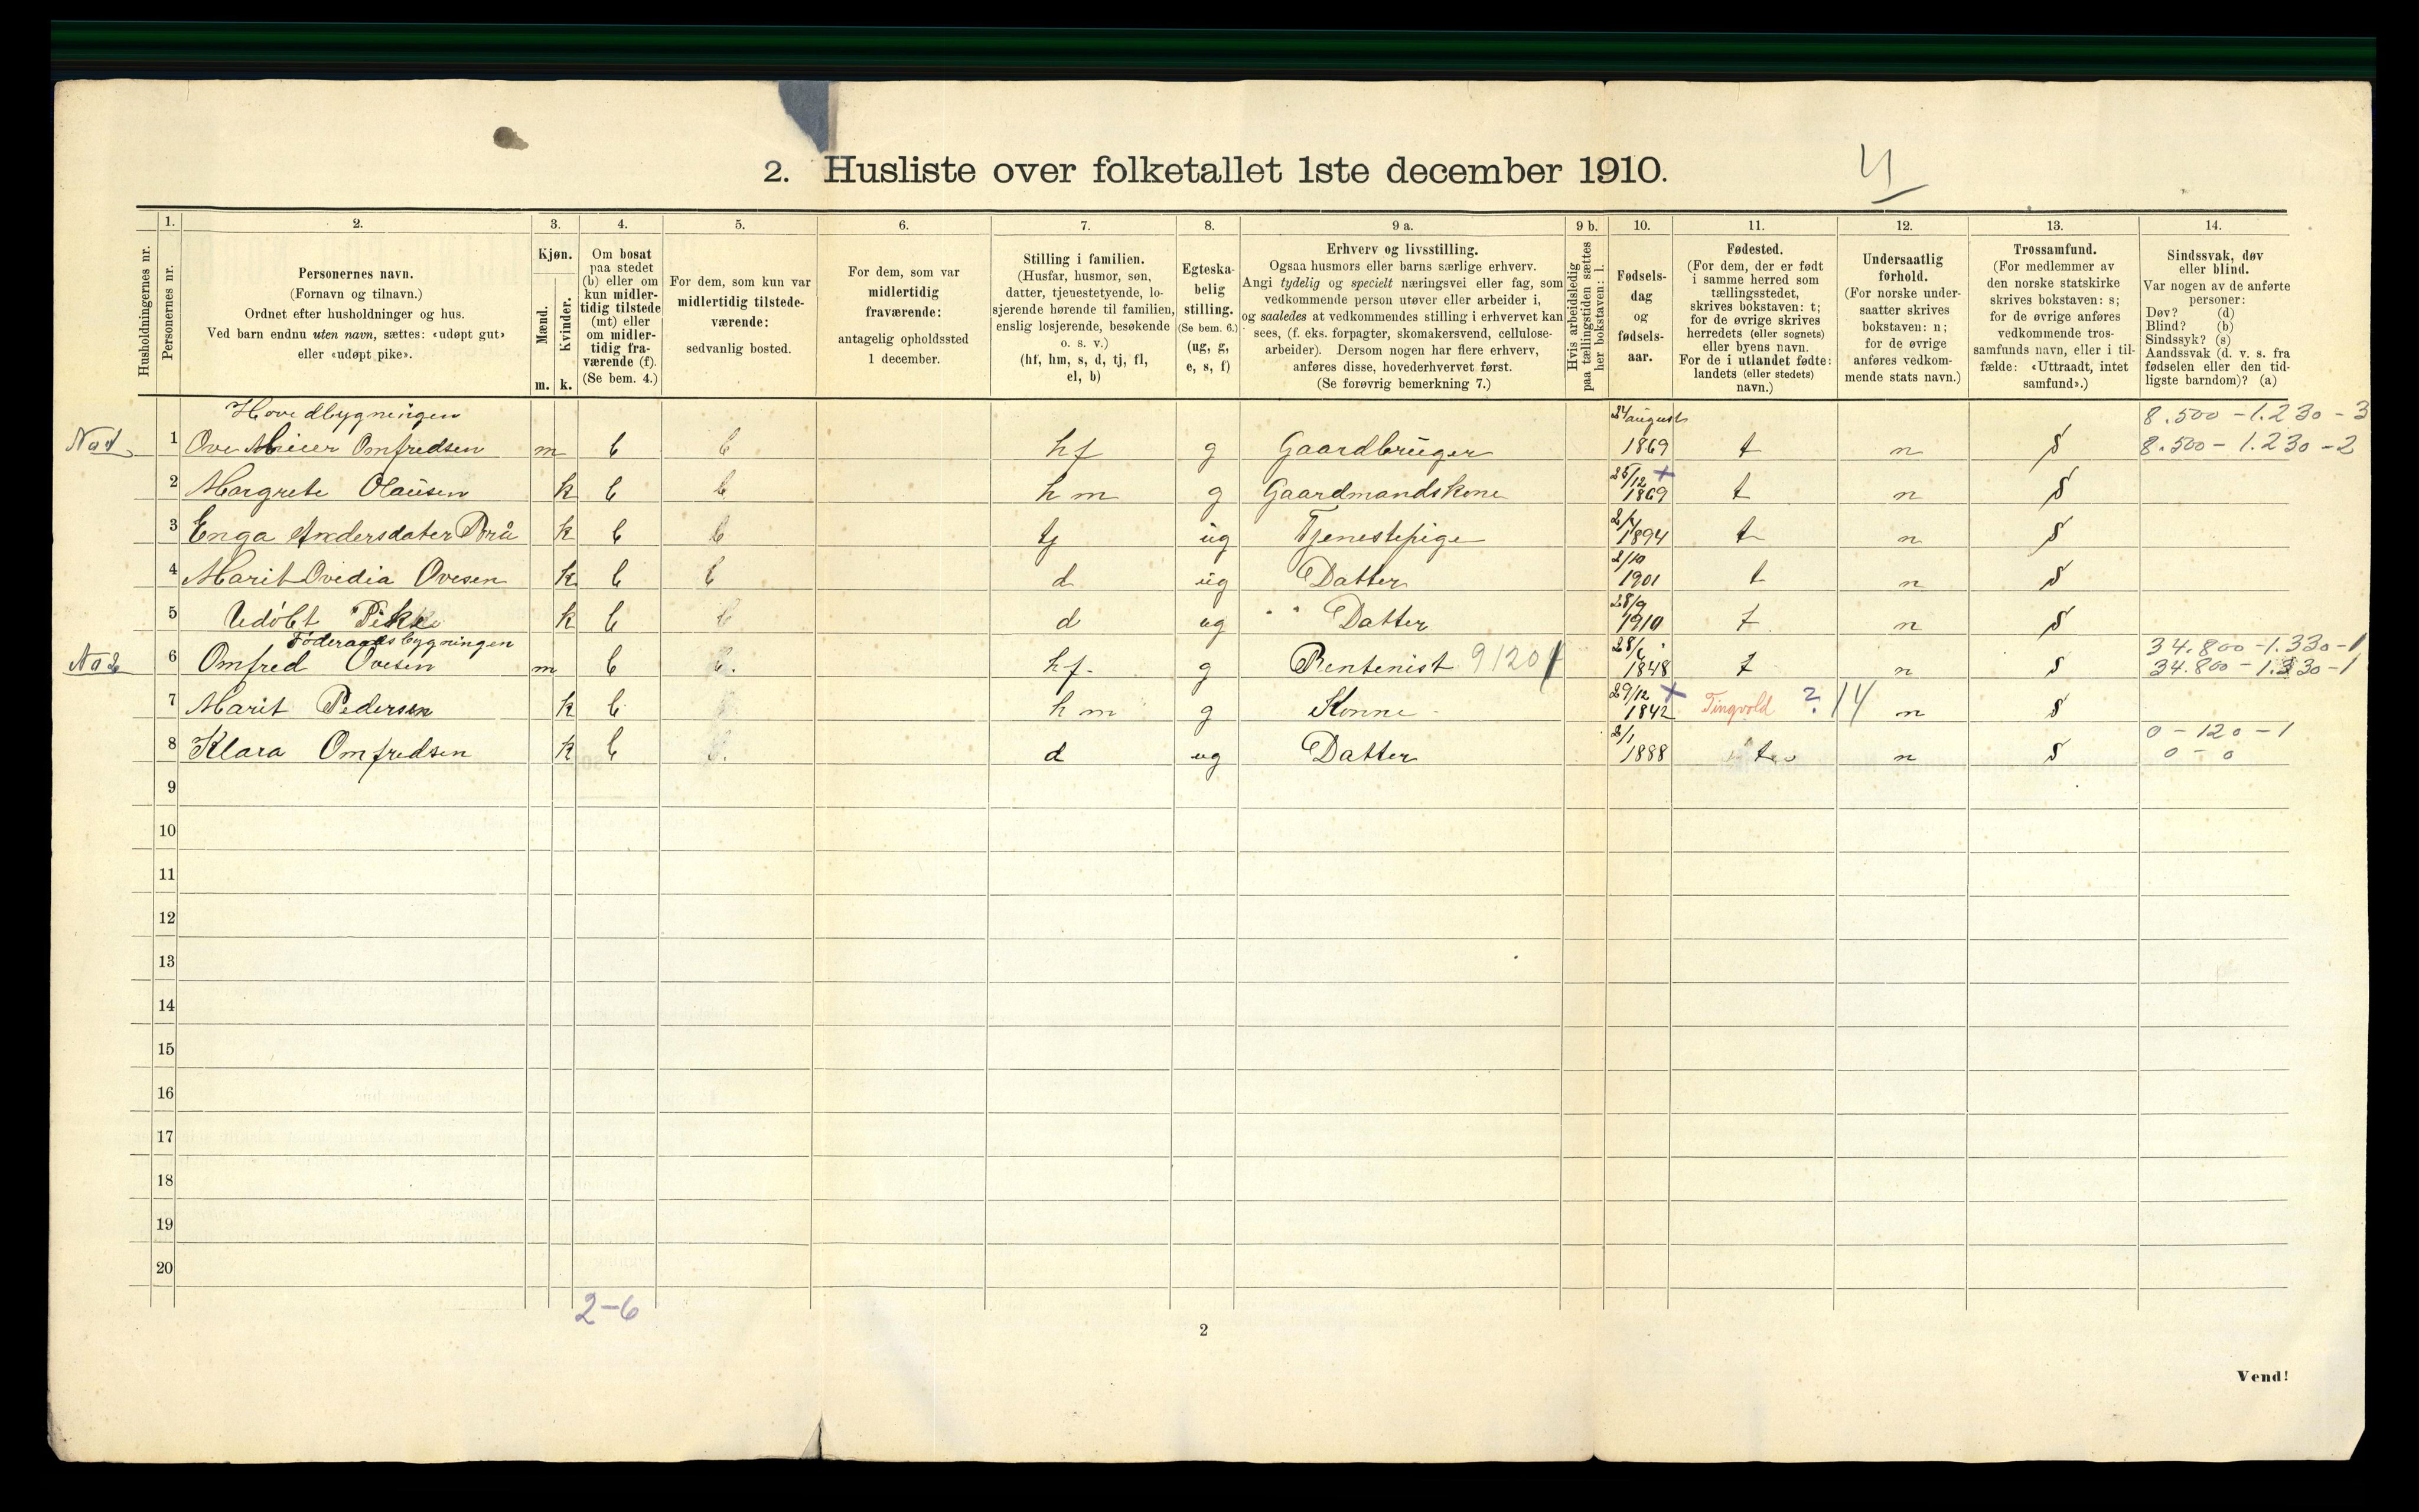 2. Husliste over folketallet 1ste december 1910.
4
Husholdningernes nr.
1. Personernes nr.
2. Personernes navn.
(Fornavn og tilnavn.)
Ordnet efter husholdninger og hus.
Ved barn endnu uten navn, sættes: «udøpt gut»
eller «udøpt pike».
3. Kjøn.
Mænd. m.
Kvinder. k.
4. Om bosat
paa stedet
(b) eller om
kun midler-
tidig tilstede
(mt) eller
om midler-
tidig fra-
værende (f).
(Se bem. 4.)
5. For dem, som kun var
midlertidig tilstede-
værende:
sedvanlig bosted.
6. For dem, som var
midlertidig
fraværende:
antagelig opholdssted
1 december.
7. Stilling i familien.
(Husfar, husmor, søn,
datter, tjenestetyende, lo-
sjerende hørende til familien,
enslig losjerende, besøkende
o. s. v.)
(hf, hm, s, d, tj, fl,
el, b)
8. Egteska-
belig
stilling.
(Se bem. 6.)
(ug, g,
e, s, f)
9 a. Erhverv og livsstilling.
Ogsaa husmors eller barns særlige erhverv.
Angi tydelig og specielt næringsvei eller fag, som
vedkommende person utøver eller arbeider i,
og saaledes at vedkommendes stilling i erhvervet kan
sees, (f. eks. forpagter, skomakersvend, cellulose-
arbeider). Dersom nogen har flere erhverv,
anføres disse, hovederhvervet først.
(Se forøvrig bemerkning 7.)
9 b. Hvis arbeidsledig
paa tællingstiden sættes
her bokstaven: l.
10. Fødsels-
dag
og
fødsels-
aar.
11. Fødested.
(For dem, der er født
i samme herred som
tællingsstedet,
skrives bokstaven: t;
for de øvrige skrives
herredets (eller sognets)
eller byens navn.
For de i utlandet fødte:
landets (eller stedets)
navn.)
12. Undersaatlig
forhold.
(For norske under-
saatter skrives
bokstaven: n;
for de øvrige
anføres vedkom-
mende stats navn.)
13. Trossamfund.
(For medlemmer av
den norske statskirke
skrives bokstaven: s;
for de øvrige anføres
vedkommende tros-
samfunds navn, eller i til-
fælde: «Uttraadt, intet
samfund».)
14. Sindssvak, døv
eller blind.
Var nogen av de anførte
personer:
Døv? (d)
Blind? (b)
Sindssyk? (s)
Aandssvak (d. v. s. fra
fødselen eller den tid-
ligste barndom)? (a)
Hovedbygningen 24 august 8.500 - 1.230 - 3
No 1 1 Ove Meier Omfredsen m b b hf g Gaardbruger 1869 t n s 8.500 - 1.230 - 2
2 Margrete Olausen k b b hm g Gaardmandskone 25/12 1869 t n s
3 Enga Andersdater Brå k b b tj ug Tjenestepige 1894 t n s
4 Marit Ovedia Ovesen k b b d ug Datter 2/10 1901 t n s
5 Udöbt Pikke k b b d ug " " Datter 28/9 1910 t n s
Föderaadsbygningen 34.800 - 1.330 - 1
No 2 6 Omfred Ovesen m b b. hf. g Rentenist 9120 1848 t n s 34.800 - 1.330 - 1
7 Marit Pedersen k b hm g Konne 29/12 1842 Tingvold ? 14 n s
0 - 120 - 1
8 Klara Omfredsen k b b. d ug Datter 2/1 1888 t n s 0 - 0
9
10
11
12
13
14
15
16
17
18
19
20
2-6
2
Vend!